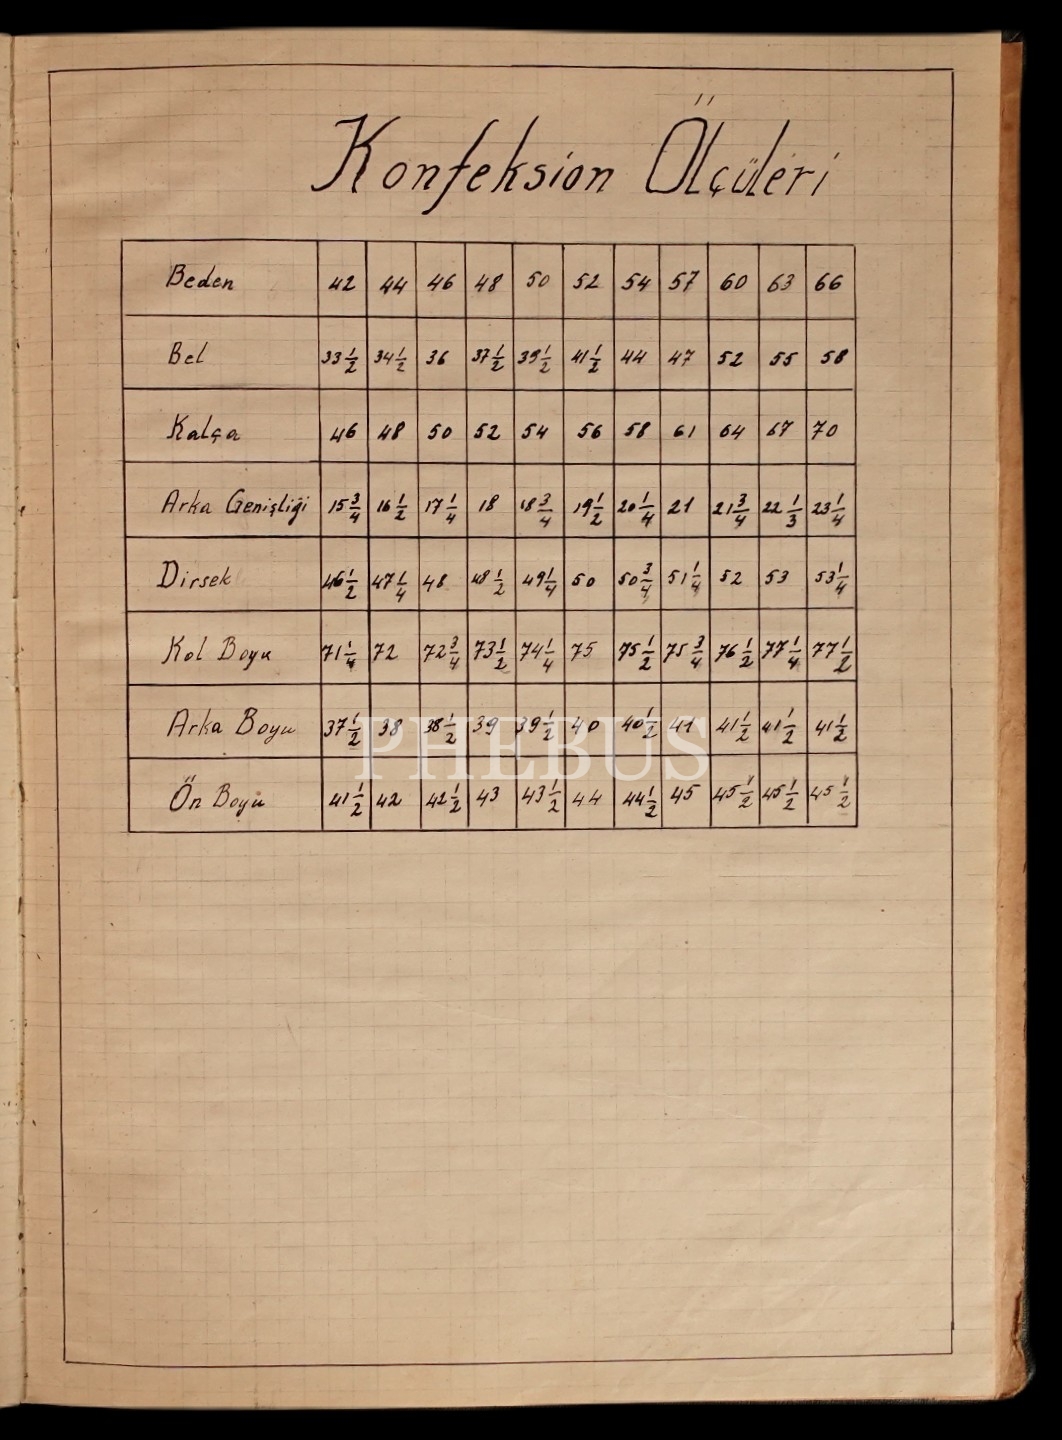 Konfeksion Ölçüleri
Beden 42 44 46 48 50 52 54 57 60 63 66
Bel 33 1/2 34 1/2 36 37 1/2 39 1/2 41 1/2 44 47 52 55 58
Kalça 46 48 50 52 54 56 58 61 64 67 70
Arka Genişliği 15 3/4 16 1/2 17 1/4 18 18 3/4 19 1/2 20 1/4 21 21 3/4 22 1/3 23 1/4
Dirsek 46 1/2 47 1/4 48 48 1/2 49 1/4 50 50 3/4 51 1/4 52 53 53 1/4
Kol Boyu 71 1/4 72 72 3/4 73 1/2 74 1/4 75 75 1/2 75 3/4 76 1/2 77 1/4 77 1/2
Arka Boyu 37 1/2 38 38 1/2 39 39 1/2 40 40 1/2 41 41 1/2 41 1/2 41 1/2
PHEBUS
Ön Boyu 41 1/2 42 42 1/2 43 43 1/2 44 44 1/2 45 45 1/2 45 1/2 45 1/2